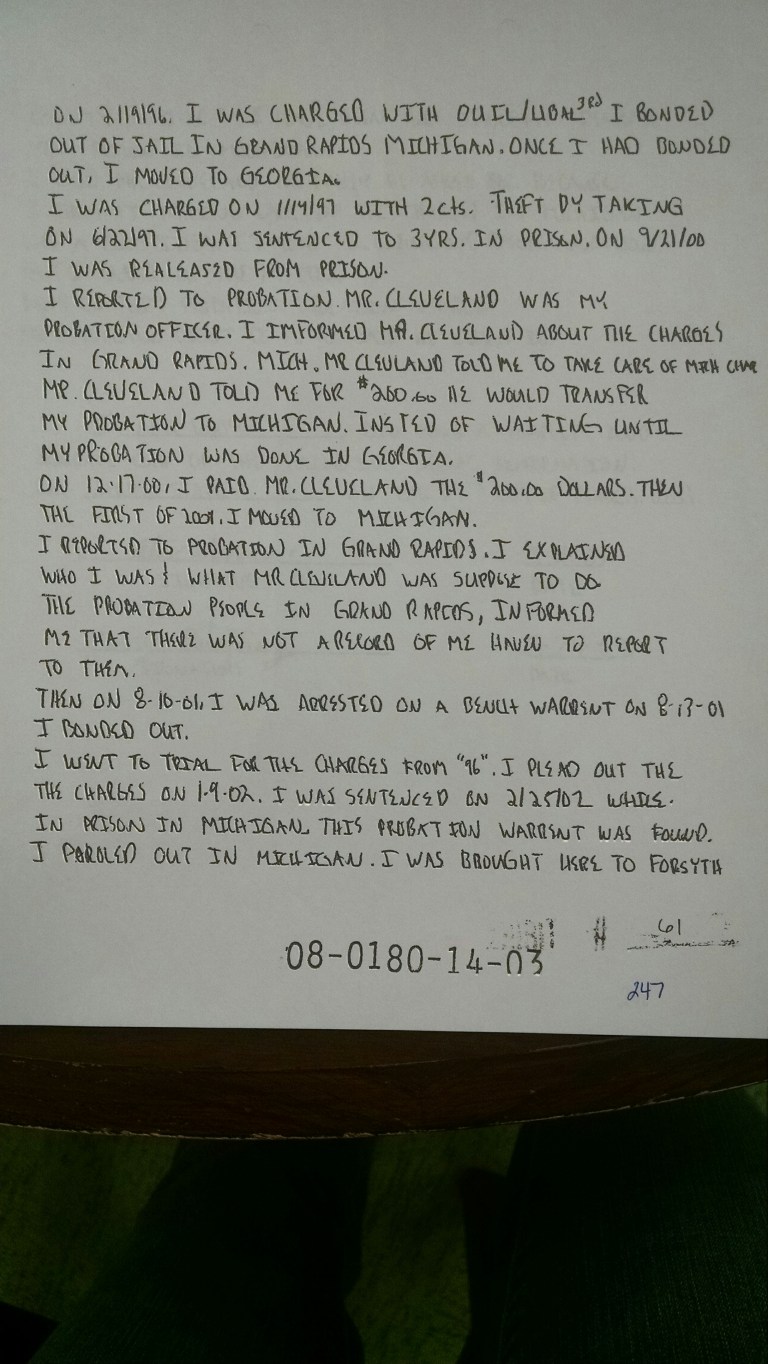 ON 2/19/96. I WAS CHARGED WITH OUIL/UBAL 3RD I BONDED
OUT OF JAIL IN GRAND RAPIDS MICHIGAN. ONCE I HAD BONDED
OUT, I MOVED TO GEORGIA.
I WAS CHARGED ON 1/14/97 WITH 2 cts. THEFT BY TAKING
ON 6/22/97. I WAS SENTENCED TO 3YRS. IN PRISON. ON 9/21/00
I WAS REALEASED FROM PRISON.
I REPORTED TO PROBATION. MR. CLEVELAND WAS MY
PROBATION OFFICER. I IMFORMED MR. CLEVELAND ABOUT THE CHARGES
IN GRAND RAPIDS. MICH. MR CLEVLAND TOLD ME TO TAKE CARE OF MICH CHAR
MR. CLEVELAND TOLD ME FOR $200.00 HE WOULD TRANSFER
MY PROBATION TO MICHIGAN. INSTED OF WAITING UNTIL
MY PROBATION WAS DONE IN GEORGIA.
ON 12.17.00, I PAID MR. CLEVELAND THE $200.00 DOLLARS. THEN
THE FIRST OF 2001. I MOVED TO MICHIGAN.
I REPORTED TO PROBATION IN GRAND RAPIDS. I EXPLAINED
WHO I WAS & WHAT MR CLEVELAND WAS SUPPOSE TO DO
THE PROBATION PEOPLE IN GRAND RAPIDS, INFORMED
ME THAT THERE WAS NOT A RECORD OF ME HAVEN TO REPORT
TO THEM.
THEN ON 8-10-01, I WAS ARRESTED ON A BENCH WARRENT ON 8-13-01
I BONDED OUT.
I WENT TO TRIAL FOR THE CHARGES FROM "96". I PLEAD OUT THE
THE CHARGES ON 1-9-02. I WAS SENTENCED ON 2/25/02 WHILE.
IN PRISON IN MICHIGAN THIS PROBATION WARRENT WAS FOUND.
I PAROLED OUT IN MICHIGAN. I WAS BROUGHT HERE TO FORSYTH
# 61
08-0180-14-03
247